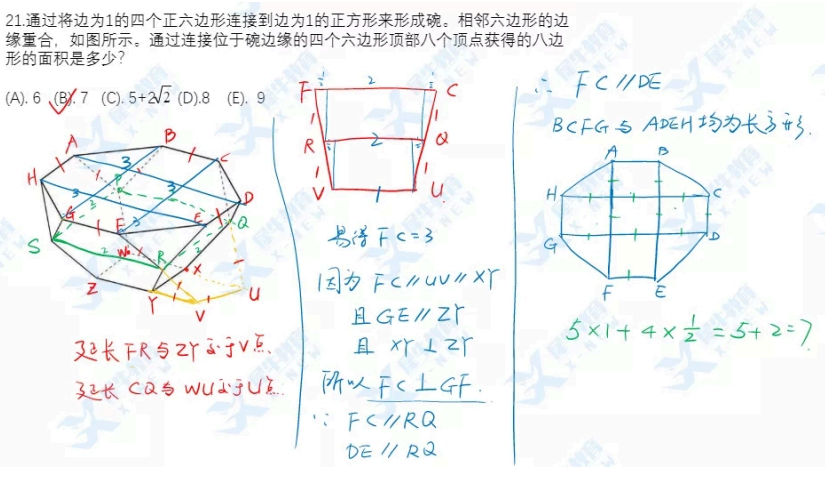 21.通过将边为1的四个正六边形连接到边为1的正方形来形成碗。相邻六边形的边
缘重合，如图所示。通过连接位于碗边缘的四个六边形顶部八个顶点获得的八边
形的面积是多少？
(A). 6 (B). 7 (C). 5+2√2 (D).8 (E). 9
A B C D E F G H
S P Q R W X Y Z V U
3 3 3 3 2
延长 FR与ZY交于V点.
延长 CQ与 WU交于U点.
F 2 C
R 2 Q
V 1 U
易得 FC=3
因为 FC//UV//XY
且 GE//ZY
且 XY⊥ZY
所以 FC⊥GF.
∵ FC//RQ
DE//RQ
∴ FC//DE
BCFG与 ADEH均为长方形.
A B
H C
G D
F E
5×1+4×1/2=5+2=7